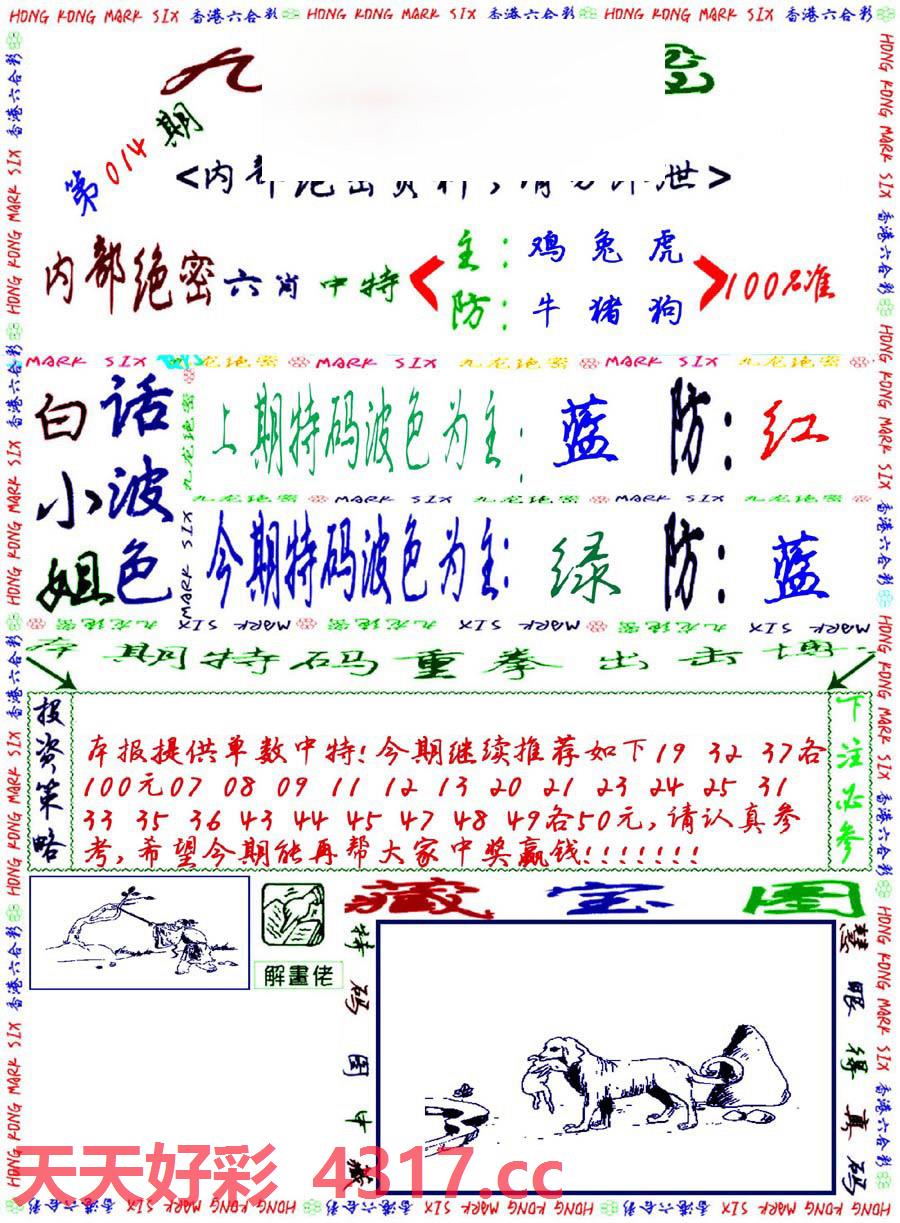 HONG KONG MARK SIX 香港六合彩 HONG KONG MARK SIX 香港六合彩 HONG KONG MARK SIX 香港六合彩
九
第014期
<内部绝密资料,请勿外泄>
内部绝密六肖中特
主:鸡兔虎
防:牛猪狗
100%准
MARK SIX 九龙绝密 MARK SIX 九龙绝密 MARK SIX 九龙绝密
白话
小波
姐色
上期特码波色为主:蓝 防:红
九龙绝密 MARK SIX 九龙绝密 MARK SIX 九龙绝密
今期特码波色为主:绿 防:蓝
九龙绝密 MARK SIX 九龙绝密 MARK SIX 九龙绝密 MARK SIX
本期特码重拳出击博
投资策略
本报提供单数中特!今期继续推荐如下19 32 37各
100元07 08 09 11 12 13 20 21 23 24 25 31
33 35 36 43 44 45 47 48 49各50元,请认真参
考,希望今期能再帮大家中奖赢钱!!!!!!!
下注必参
藏宝图
解畫佬
特码图中藏
慧眼得真码
天天好彩 4317.cc
HONG KONG MARK SIX 香港六合彩 HONG KONG MARK SIX 香港六合彩 HONG KONG MARK SIX